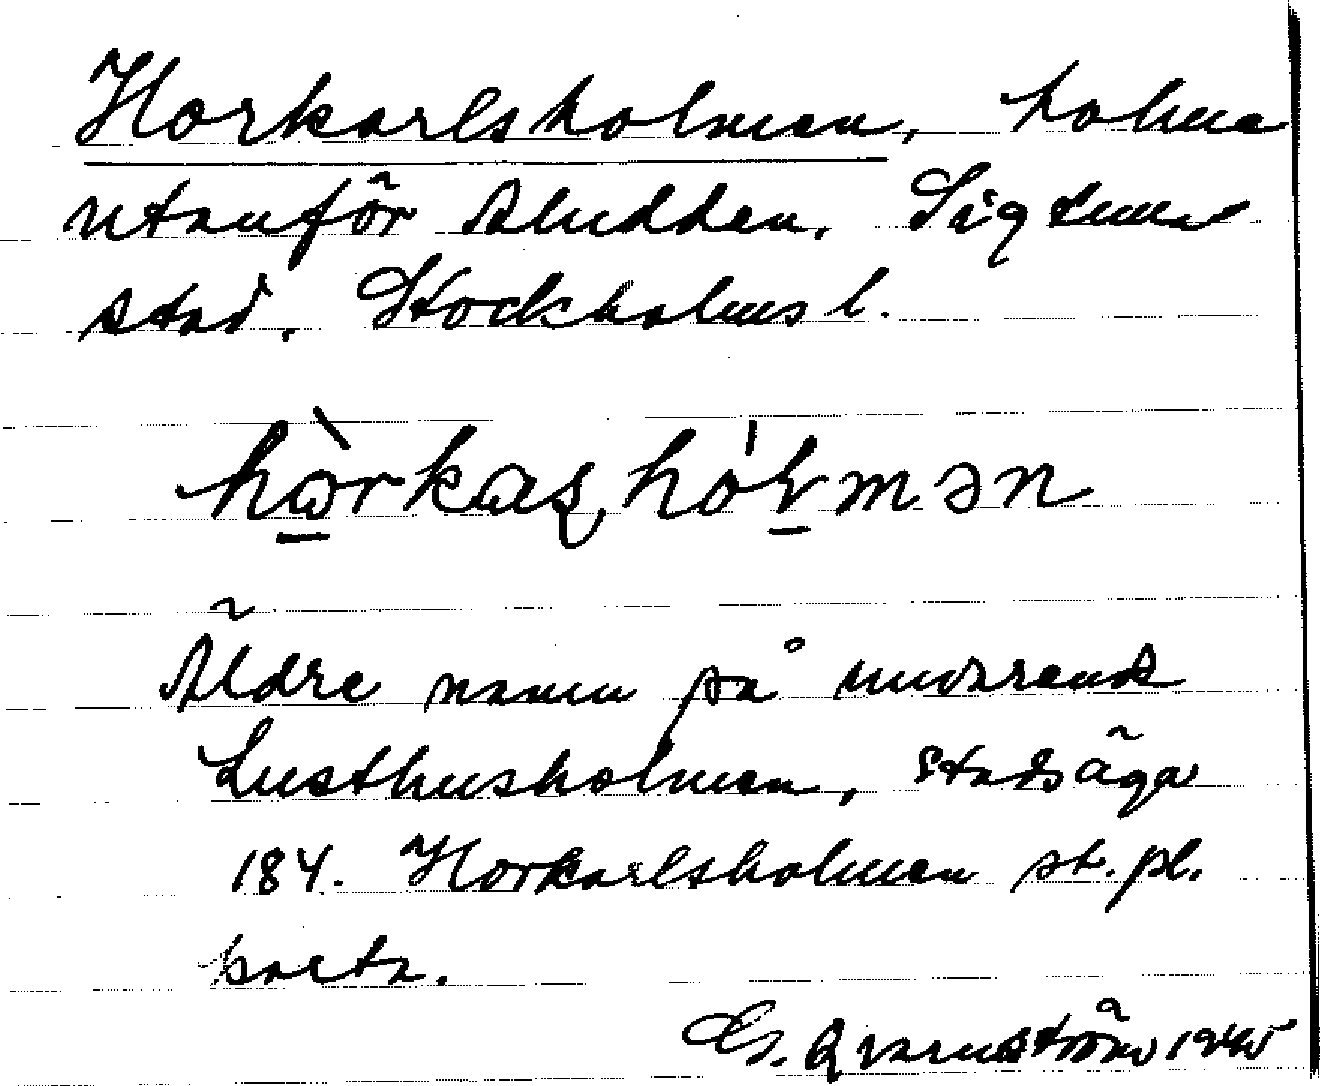 Horkarlsholmen, holme
utanför Aludden. Sigtuna
stad. Stockholms l.
hòrkas hólmən
Äldre namn på nuvarande
Lusthusholmen, stadsäga
184. Horkarlsholmen st. pl.
karta.
G. Qvarnström